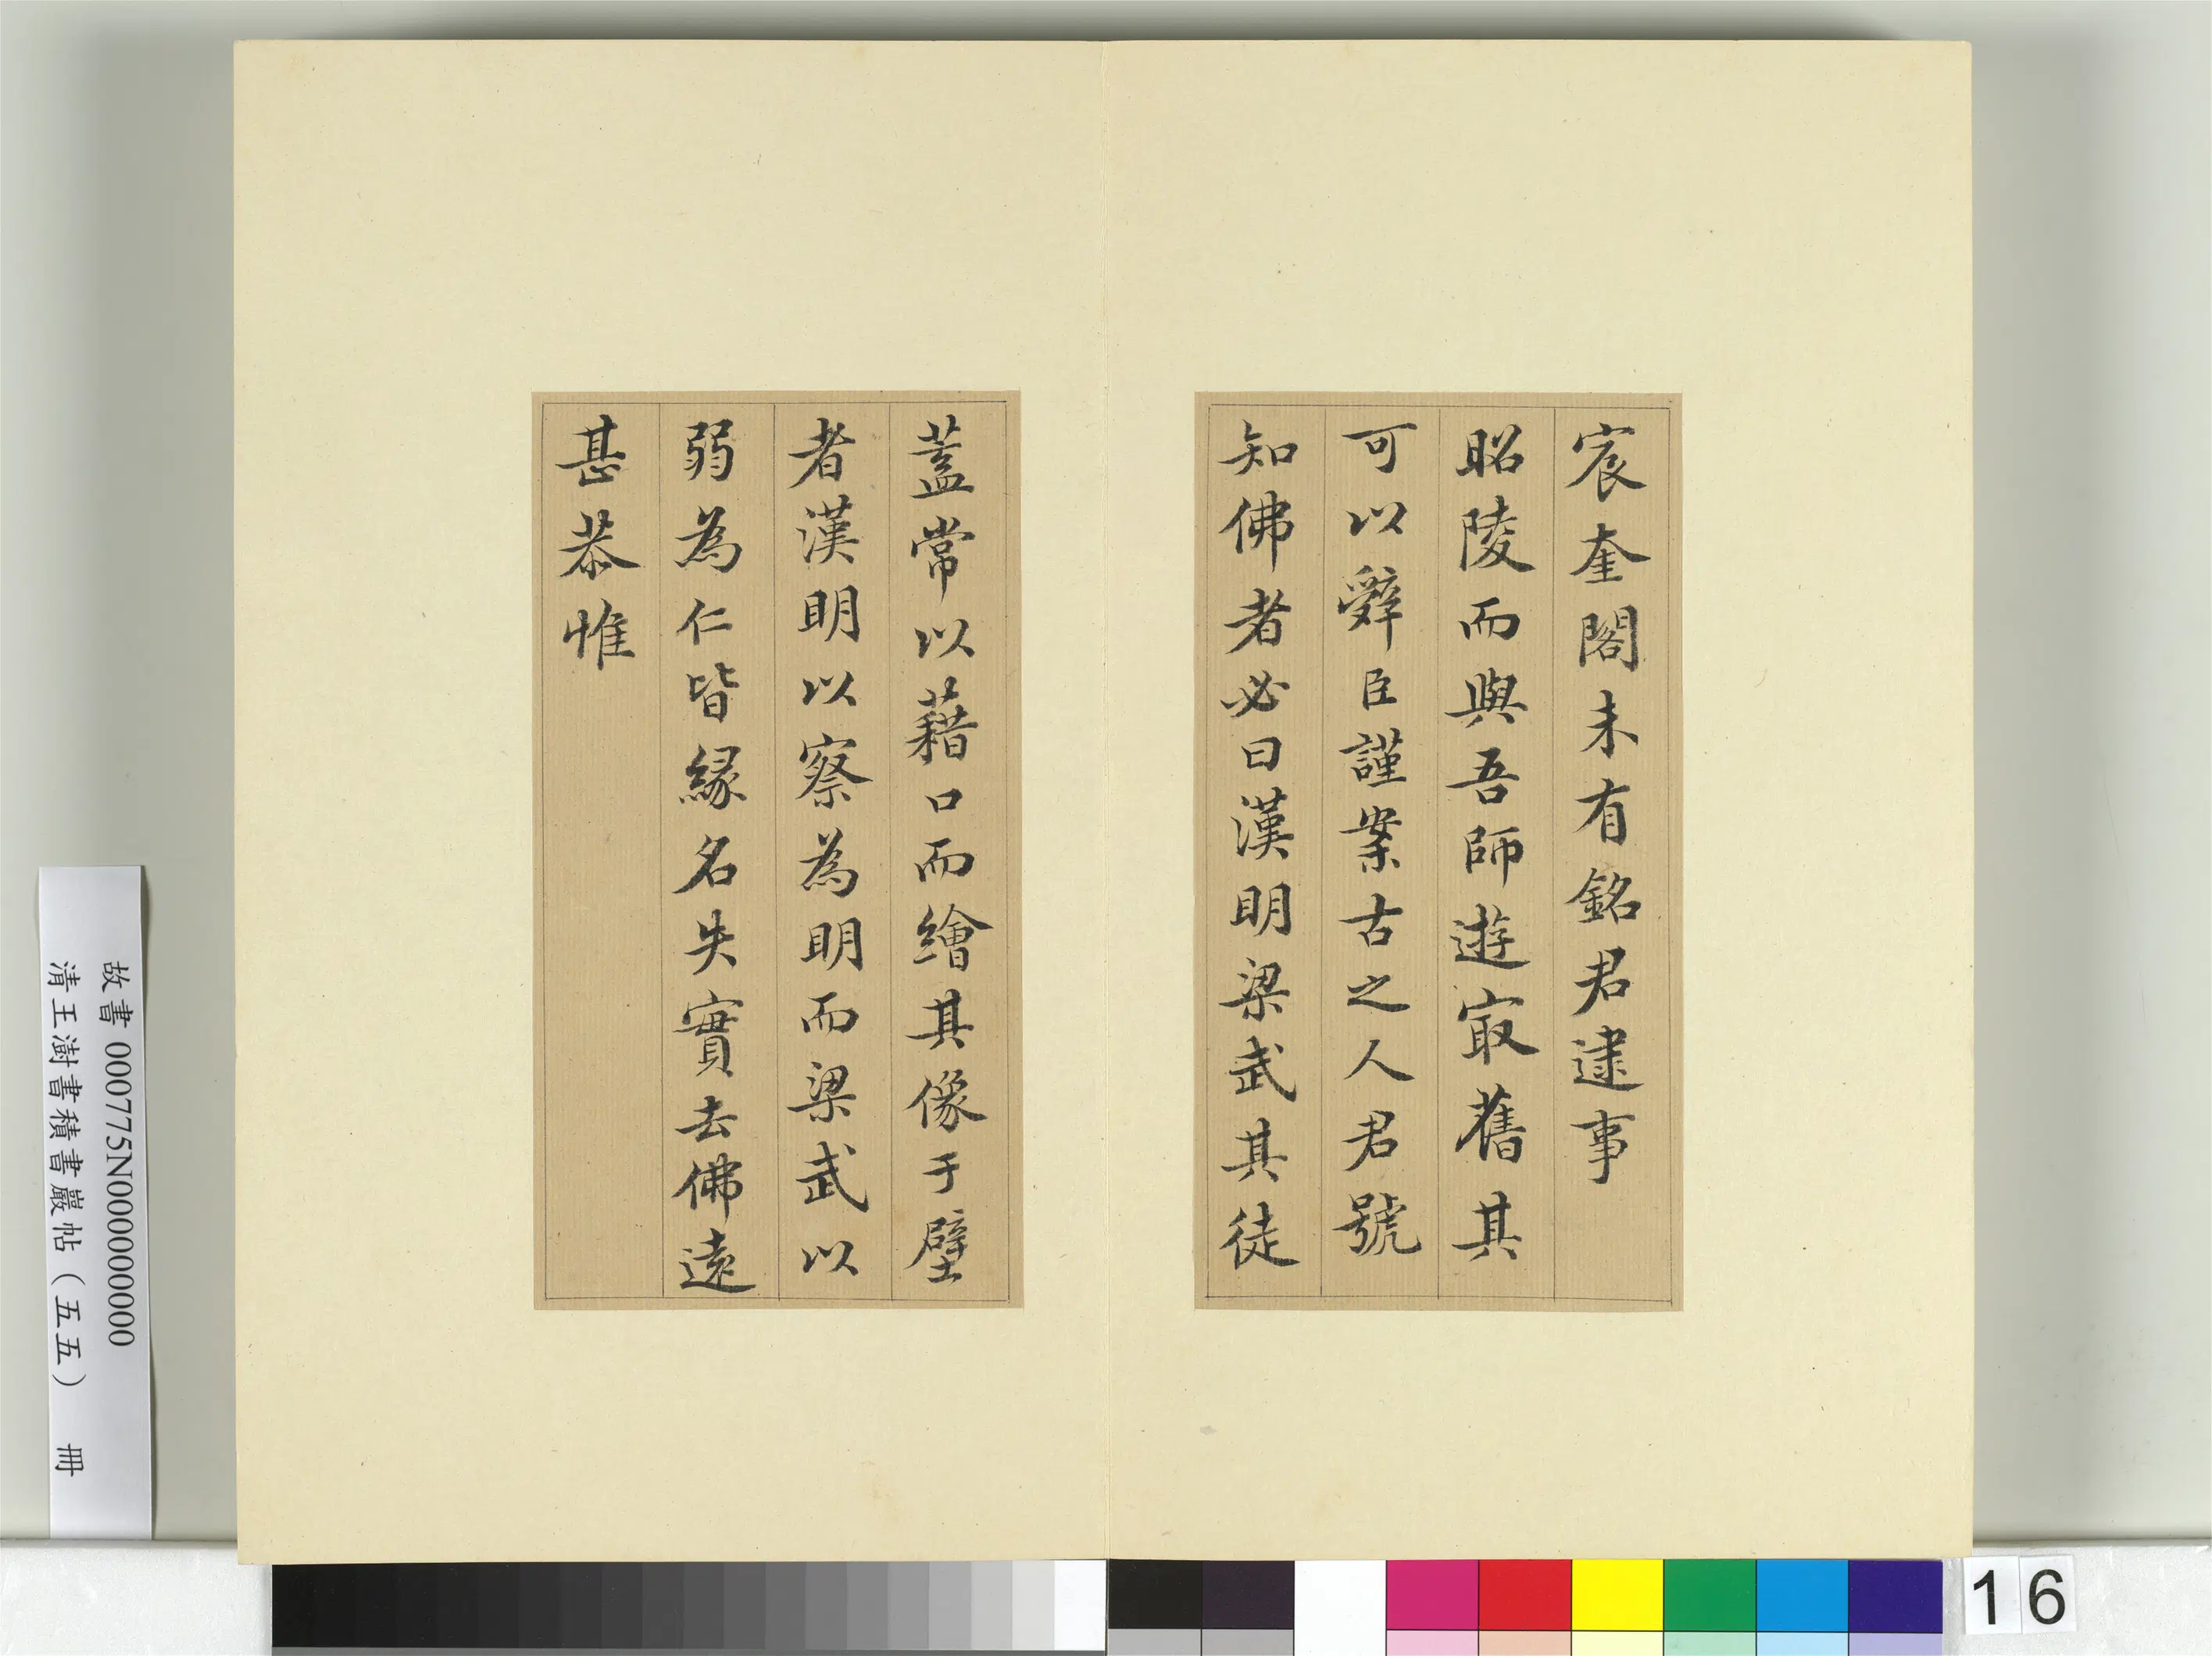 宸奎閣未有銘君逮事
昭陵而與吾師遊㝡舊其
可以辤臣謹案古之人君號
知佛者必曰漢明梁武其徒
蓋常以藉口而繪其像于壁
者漢明以察為明而梁武以
弱為仁皆緣名失實去佛遠
甚恭惟
故書 000775N000000000
清王澍書積書巖帖（五五） 冊
16